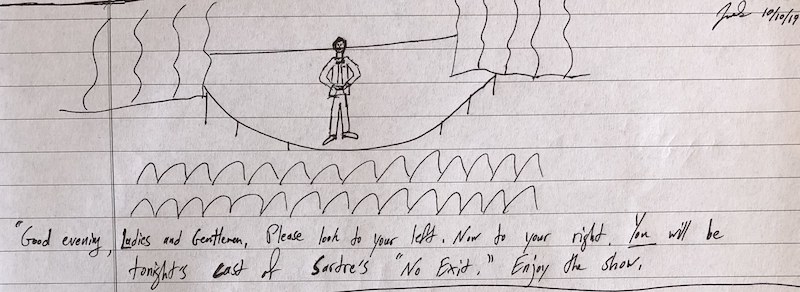 10/10/19
"Good evening, Ladies and Gentlemen, Please look to your left. Now to your right. You will be
tonight's cast of Sartre's "No Exit." Enjoy the show.